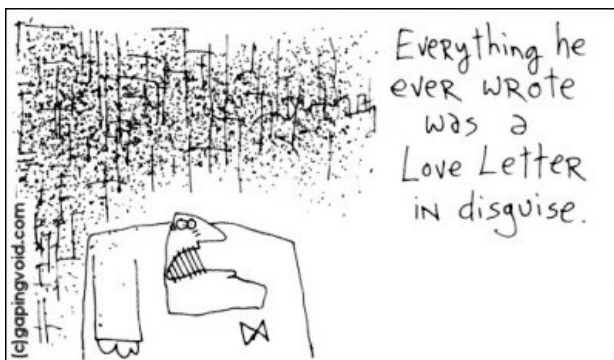 Everything he
ever wrote
was a
Love Letter
in disguise.
(c)gapingvoid.com